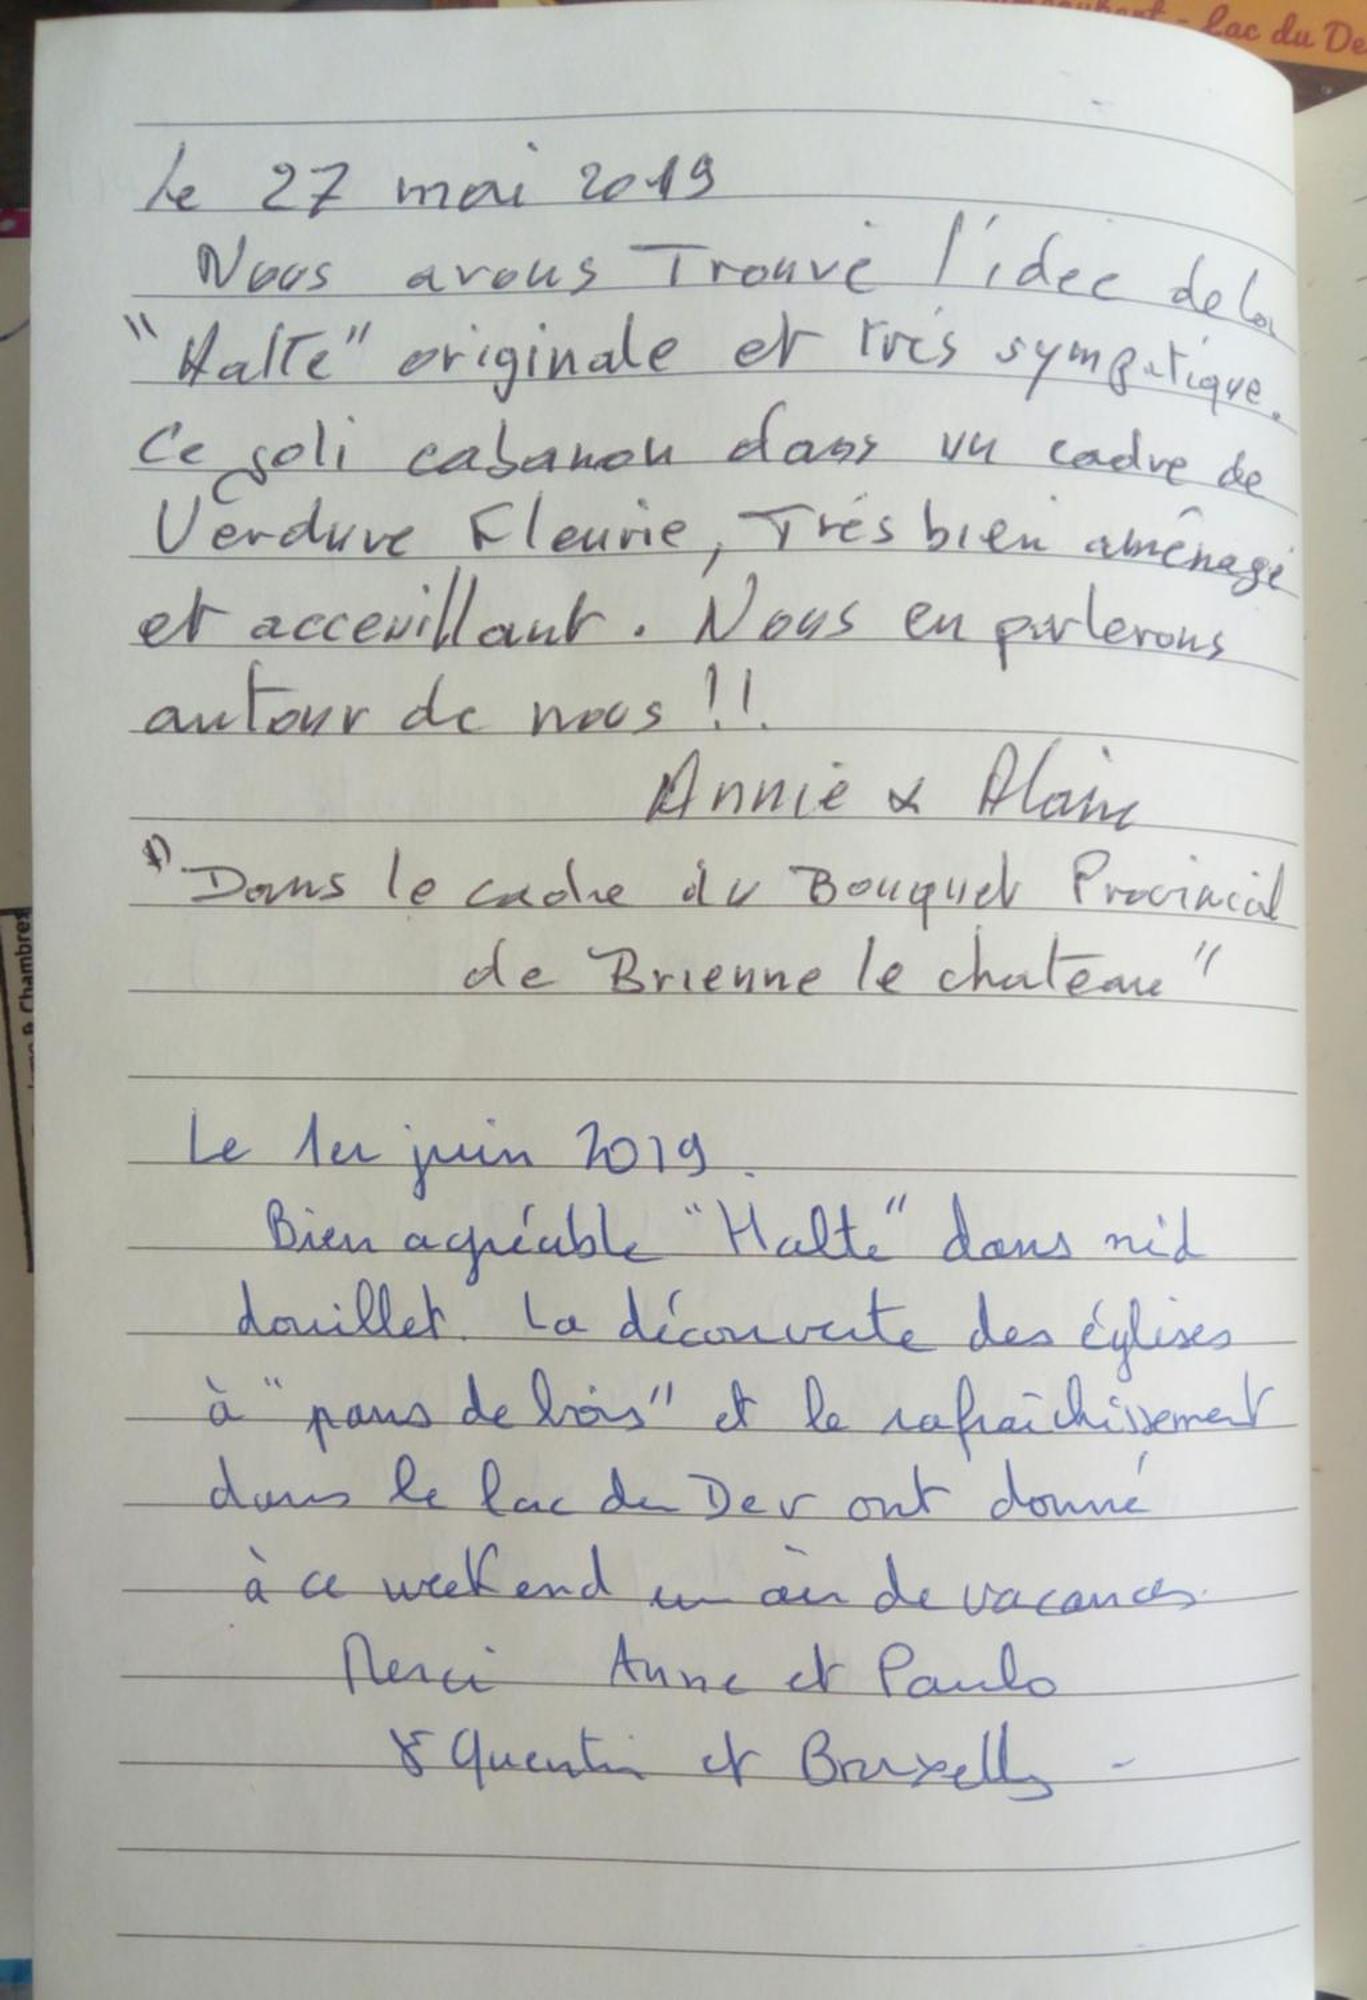 lac du De
Le 27 mai 2019
Nous avons Trouvé l'idée de la
"Halte" originale et très sympatique.
Ce joli cabanon dans un cadre de
Verdure Fleurie, Très bien aménagé
et acceuillant. Nous en parlerons
autour de nous !!.
Annie & Alain
"Dans le cadre du Bouquet Provincial
de Brienne le chateau"
& Chambres
Le 1er juin 2019.
Bien agréable "Halte" dans nid
douillet. La découverte des églises
à "pans de bois" et le rafraîchissement
dans le lac du Der ont donné
à ce weekend un air de vacances.
Merci Anne et Paulo
St Quentin et Bruxelles -